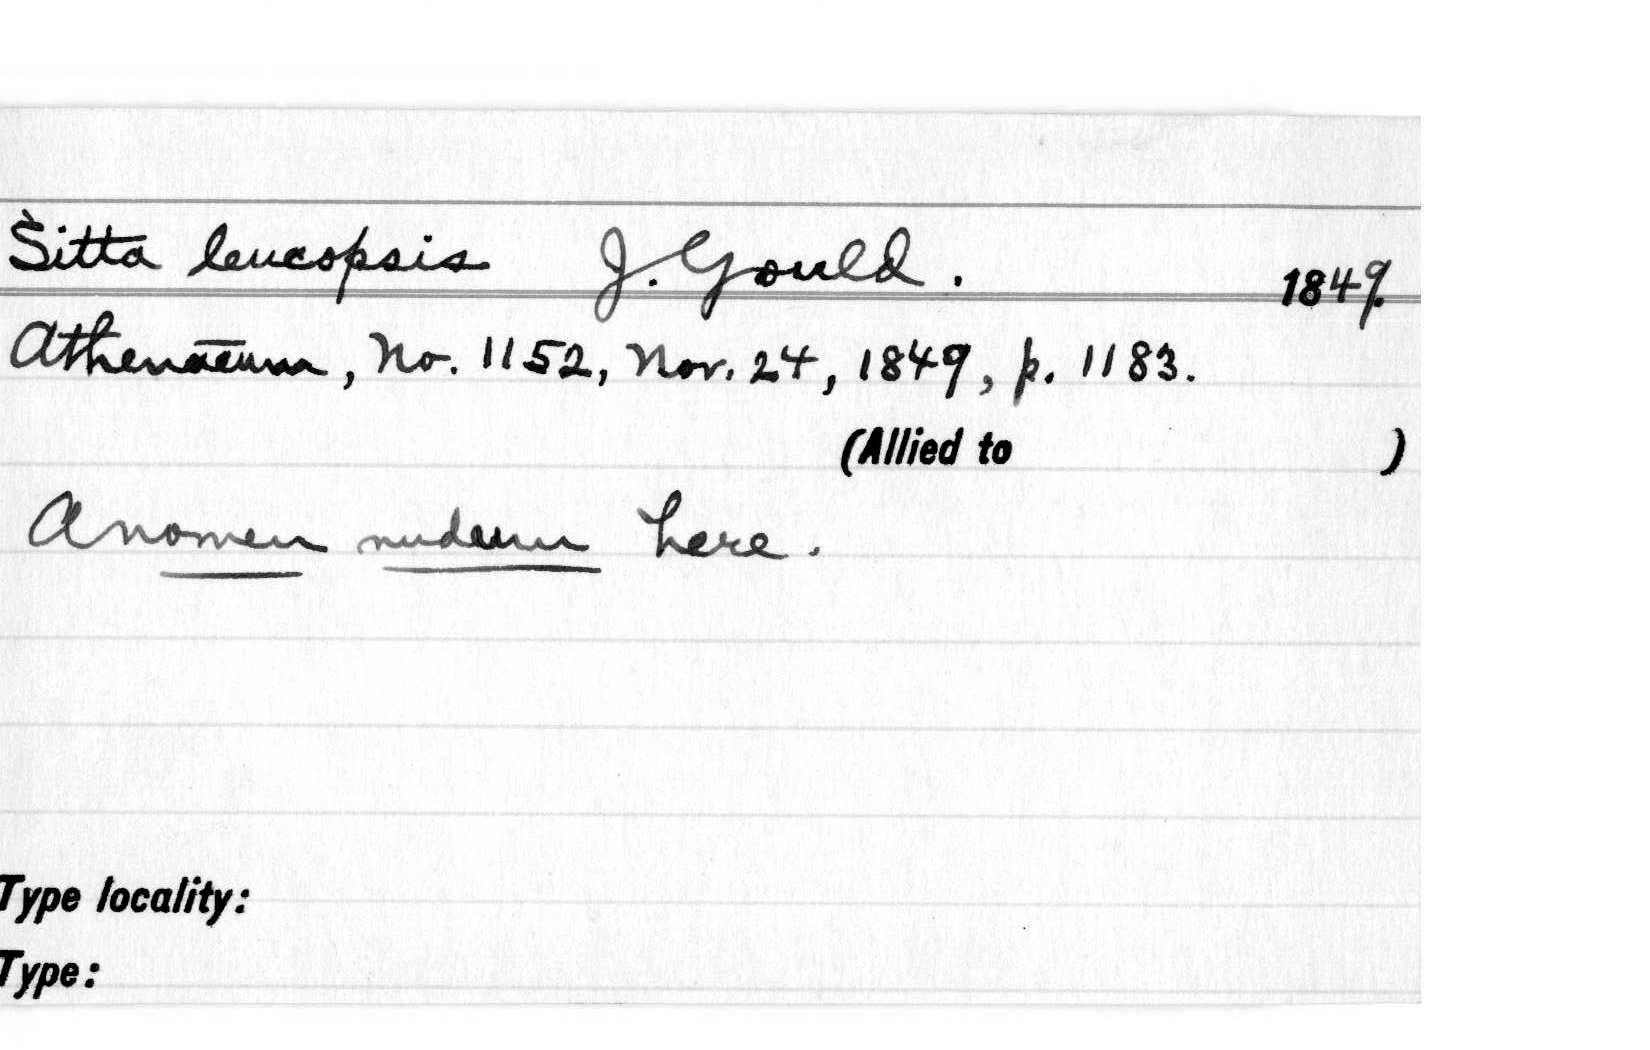 Sitta leucopsis J. Gould. 1849.
Athenaeum, No. 1152, Nov. 24, 1849, p. 1183.
(Allied to )
A nomen nudum here.
Type locality:
Type: